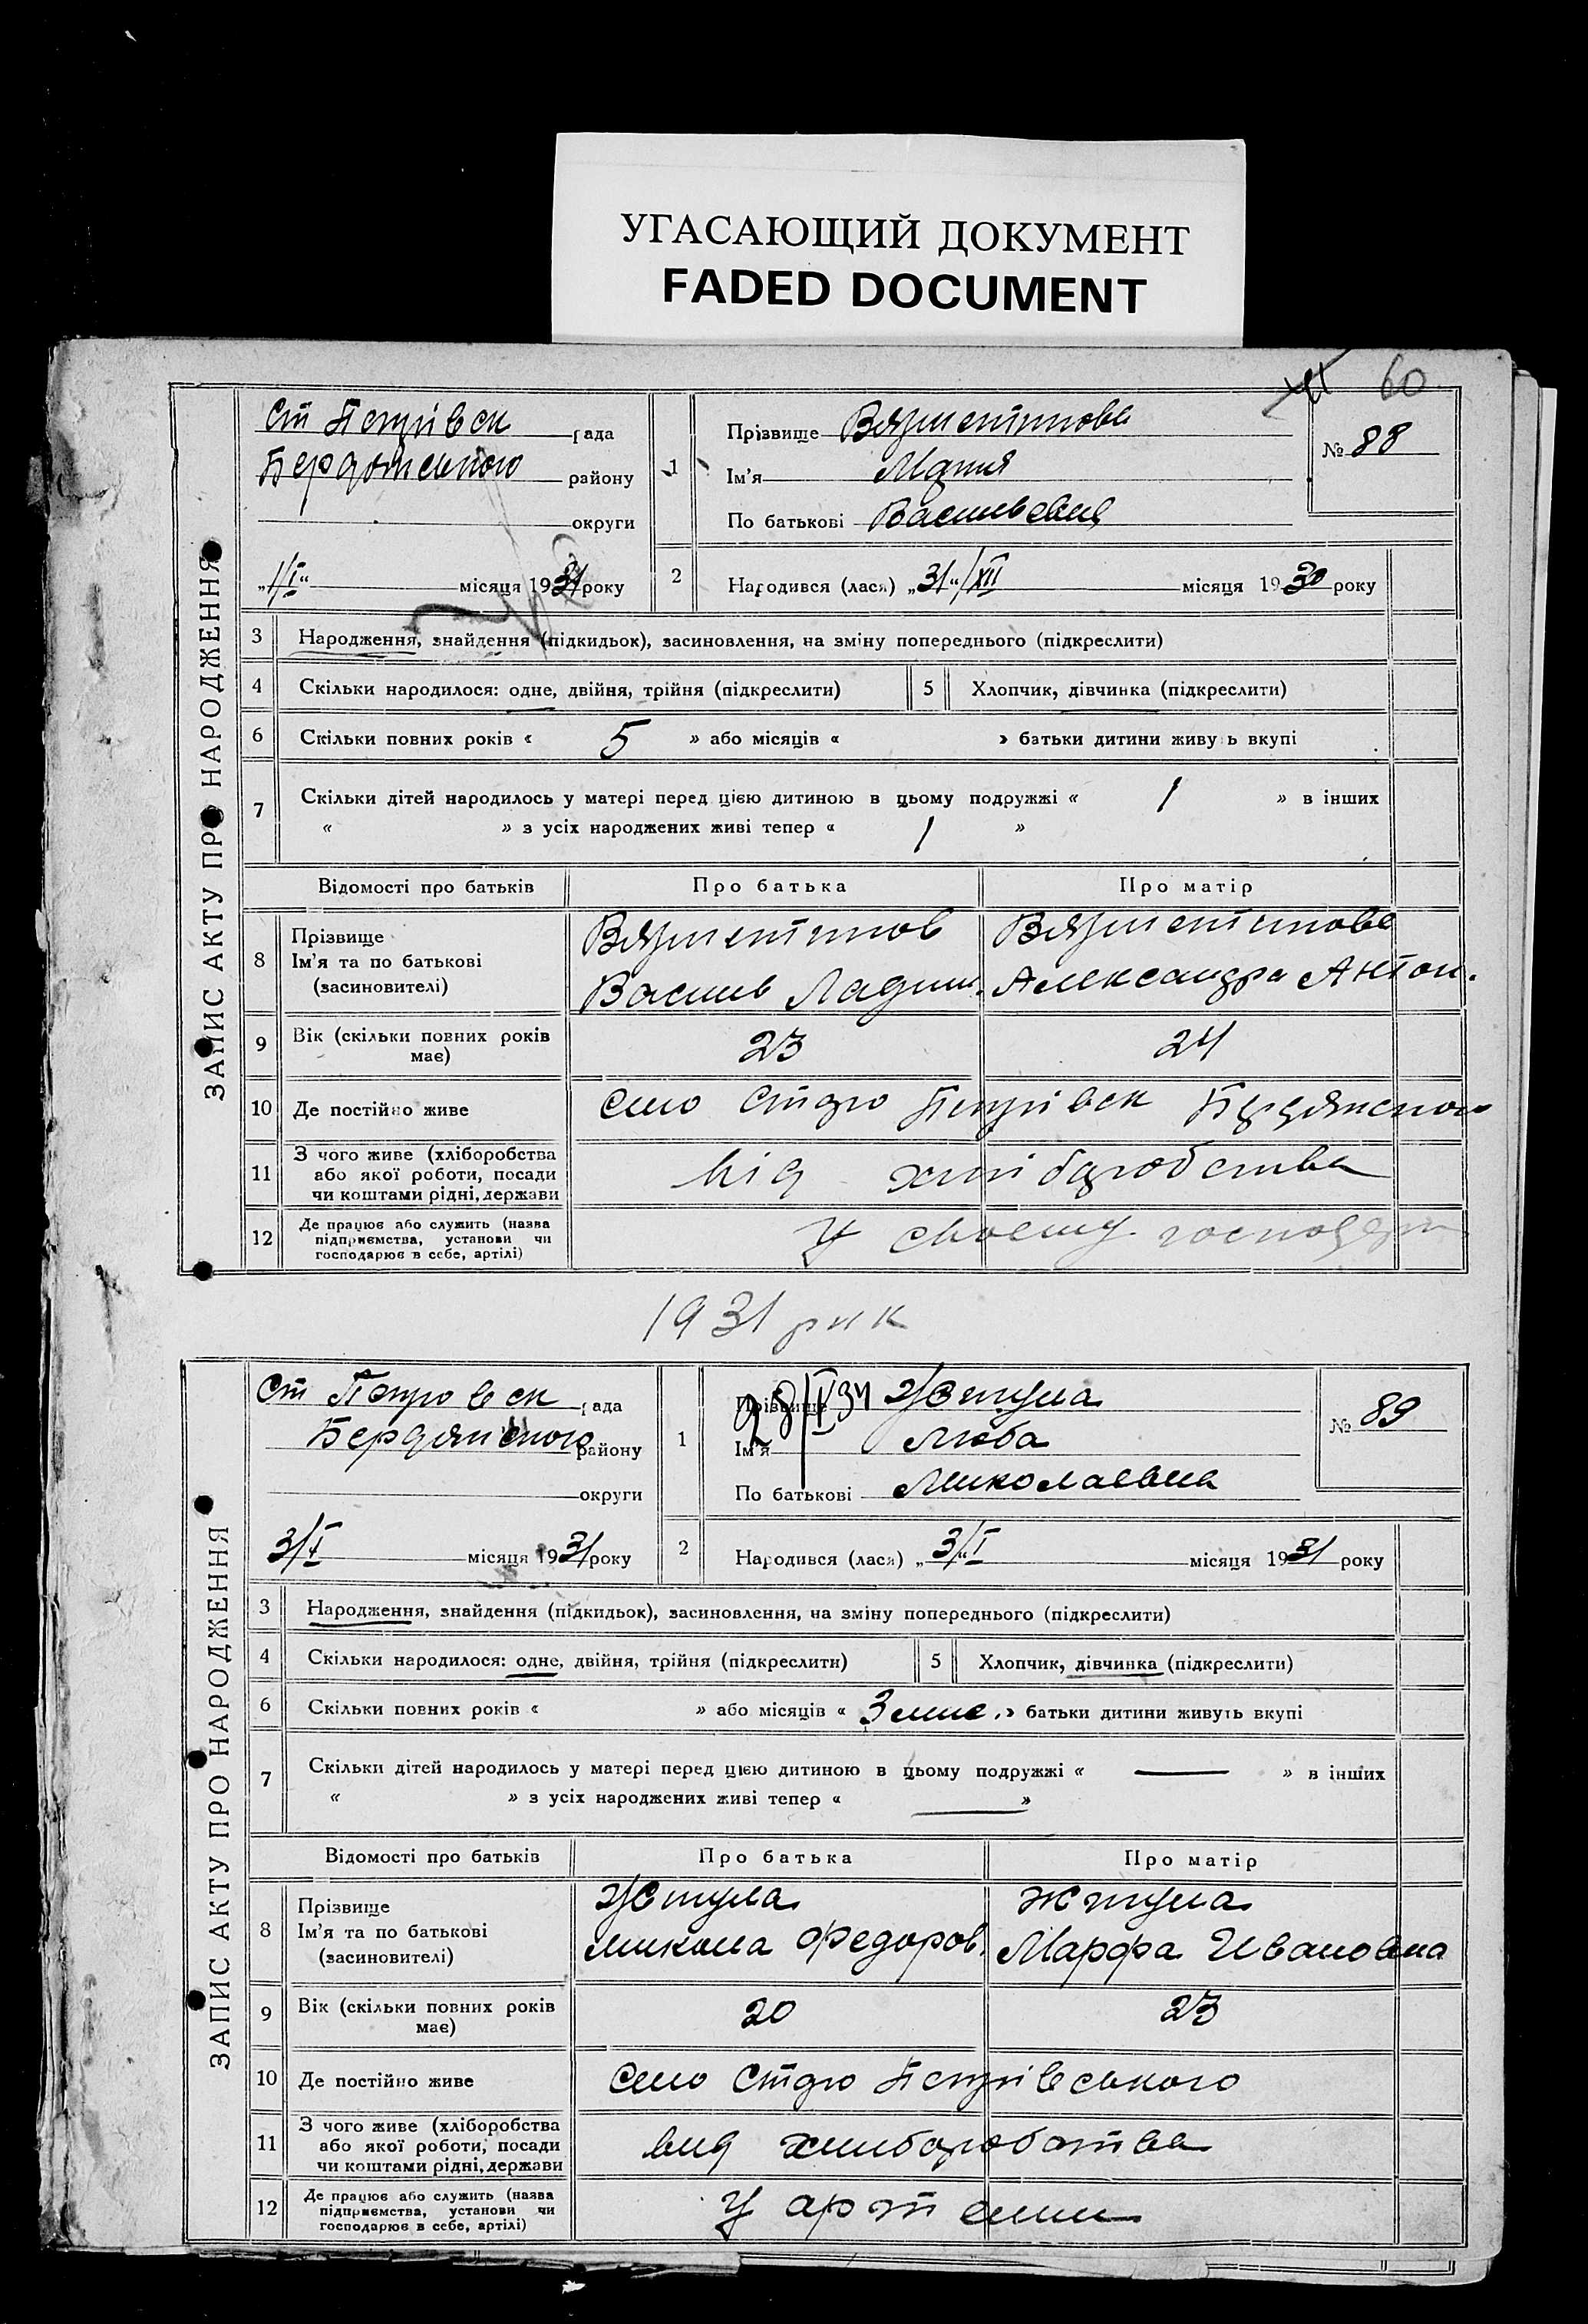 УГАСАЮЩИЙ ДОКУМЕНТ
FADED DOCUMENT
60
ЗАПИС АКТУ ПРО НАРОДЖЕННЯ
Ст Петрівск рада
Бердянського району
округи
„1/I“ місяця 1931 року
1
Прізвище
Ім'я Мария
По батькові Васильевна
№ 88
2
Народився (лася) „31“/XII місяця 1930 року
3 Народження, знайдення (підкидьок), засиновлення, на зміну попереднього (підкреслити)
4 Скільки народилося: одне, двійня, трійня (підкреслити) 5 Хлопчик, дівчинка (підкреслити)
6 Скільки повних років « 5 » або місяців « » батьки дитини живуть вкупі
7 Скільки дітей народилось у матері перед цією дитиною в цьому подружжі « 1 » в інших
« » з усіх народжених живі тепер « 1 »
Відомості про батьків Про батька Про матір
8 Прізвище
Ім'я та по батькові
(засиновителі)
Василь
Александра Антон.
9 Вік (скільки повних років має) 23 24
10 Де постійно живе село Старо Петрівск Бердянського
11 З чого живе (хліборобства
або якої роботи, посади
чи коштами рідні, держави
від хліборобства
12 Де працює або служить (назва
підприємства, установи чи
господарює в себе, артілі)
У своему господар
1931 рик
ЗАПИС АКТУ ПРО НАРОДЖЕННЯ
Ст Петровск рада
Бердянського району
округи
3/I місяця 1931 року
1
Прізвище
Ім'я Люба
По батькові Миколаевна
№ 89
2
Народився (лася) „3/“I місяця 1931 року
3 Народження, знайдення (підкидьок), засиновлення, на зміну попереднього (підкреслити)
4 Скільки народилося: одне, двійня, трійня (підкреслити) 5 Хлопчик, дівчинка (підкреслити)
6 Скільки повних років « » або місяців « 3 мис. » батьки дитини живуть вкупі
7 Скільки дітей народилось у матері перед цією дитиною в цьому подружжі « — » в інших
« » з усіх народжених живі тепер « — »
Відомості про батьків Про батька Про матір
8 Прізвище
Ім'я та по батькові
(засиновителі)
Микола Федоров.
Марфа Ивановна
9 Вік (скільки повних років має) 20 23
10 Де постійно живе село Старо Петрівського
11 З чого живе (хліборобства
або якої роботи, посади
чи коштами рідні, держави
вид хлиборобства
12 Де працює або служить (назва
підприємства, установи чи
господарює в себе, артілі)
У артели